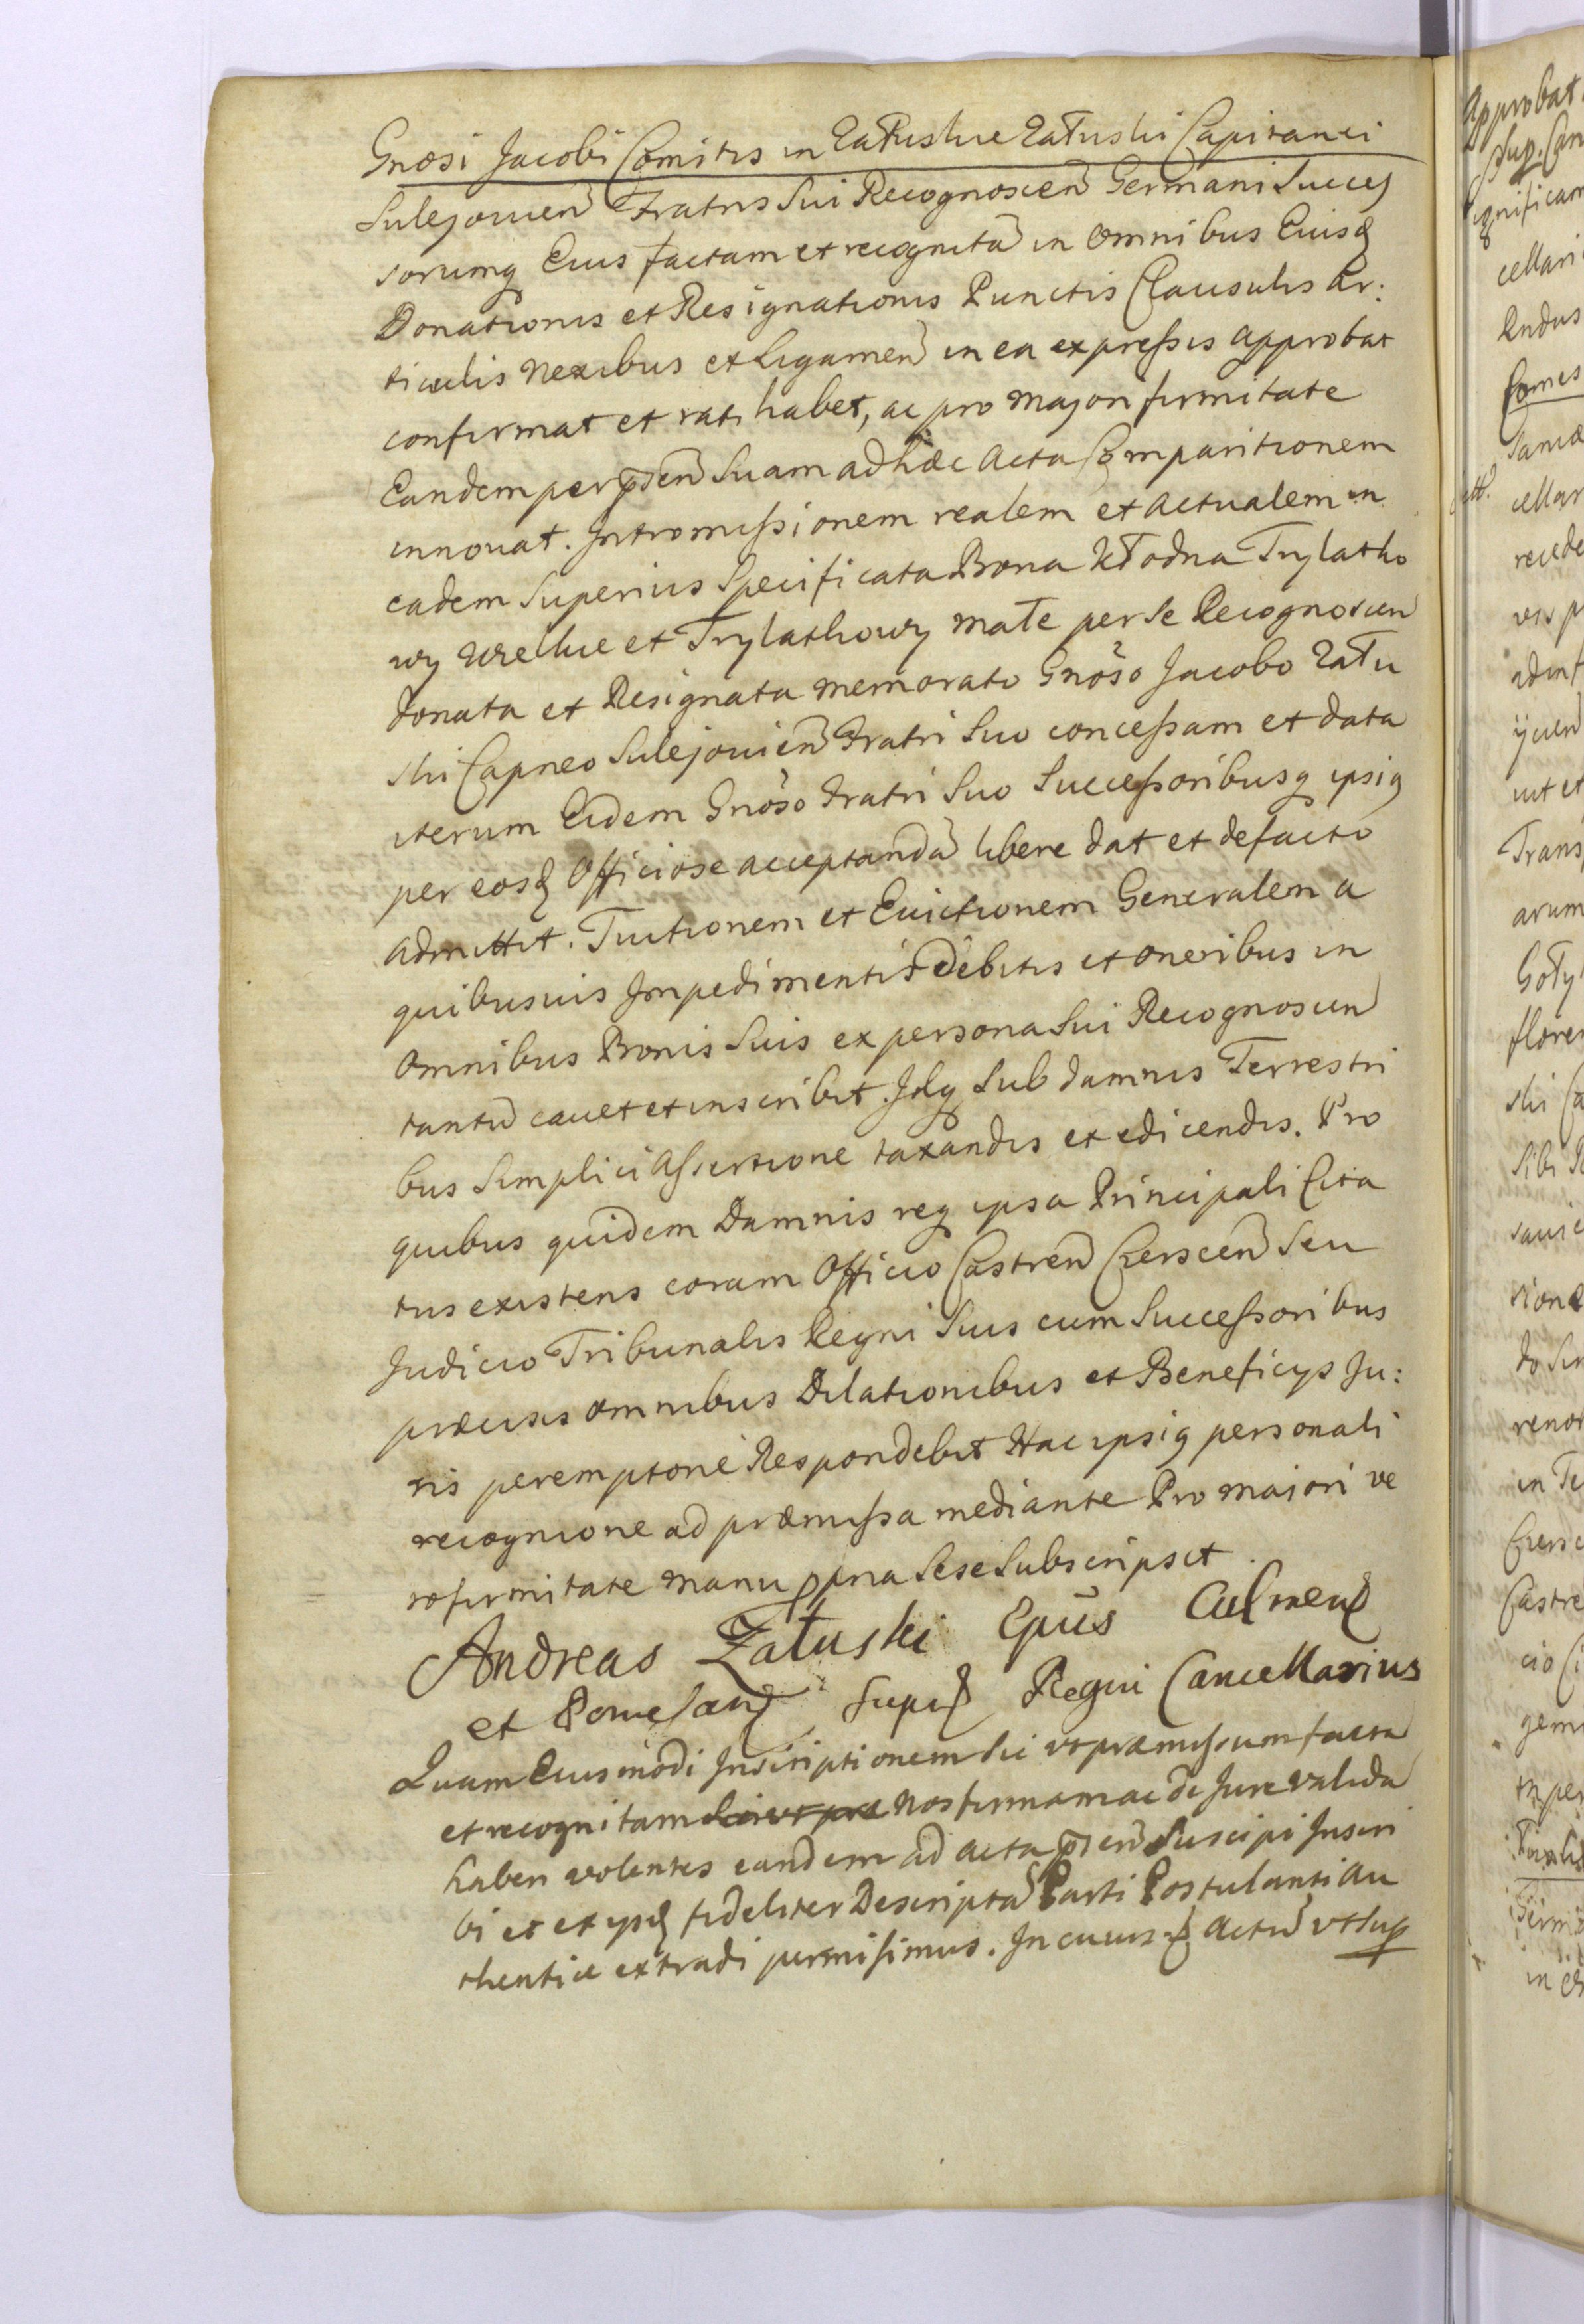 Gnosi Jacobi Comitis in Załuskie Załuski Capitanei
Sulejovien Fratris Sui Recognoscen Germani Succes
sorumq Eius factam et recognitã in omnibus Eiusd
Donationis et Resignationis Punctis Clausulis Ar:
ticulis Nexibus et Ligamen in ea expressis approbat
confirmat et ratihabet, ac pro majori firmitate
Eandem per p̃sen Suam ad hæc Acta Comparitionem
innovat. Intromissionem realem et actualem in
eadem Superius Specificata Bona Włodna Trylatko
wy Wielkie et Trylatkowy małe per se Recognoscen
donata et Resignata memorato Gnõso Jacobo Zału
ski Capneo Sulejovien Fratri Suo concessam et datã
iterum Eidem Gnõso Fratri Suo Successoribusq ipsiq
per eosd Officiose acceptandã libere dat et defacto
admittit. Tuitionem et Evictionem Generalem a
quibusvis Impedimentis debitis et oneribus in
omnibus Bonis Suis ex persona Sui Recognoscen
tantũ cavet et inscribit. Idq Sub damnis Terrestri
bus Simplici Assertione taxandis et edicendis. Pro
quibus quidem Damnis req ipsa Principali Cita
tus existens coram Officio Castren Czerscen Seu
Judicio Tribunalis Regni Suis cum Successoribus
præcisis omnibus Dilationibus et Beneficys Ju:
ris peremptorie Respondebit Hac ipsiq personali
recognione ad præmissa mediante Pro majori ve
rofirmitate manu ppria Sese Subscripsit.
Andreas Załuski Epũs Culmens
et Pomesanz Supr Regni Cancellarius
Quam Eiusmodi Inscriptionem Sic ut præmissum factã
et recognitam Sic ut præ nos firmam ac de Jure validã
haberi volentes eandem ad acta p̃sen Suscipi Inscri
bi et ex ysd fideliter Descriptã Parti Postulanti au
thentice extradi permisimus. In cuius Actũ ut Sup